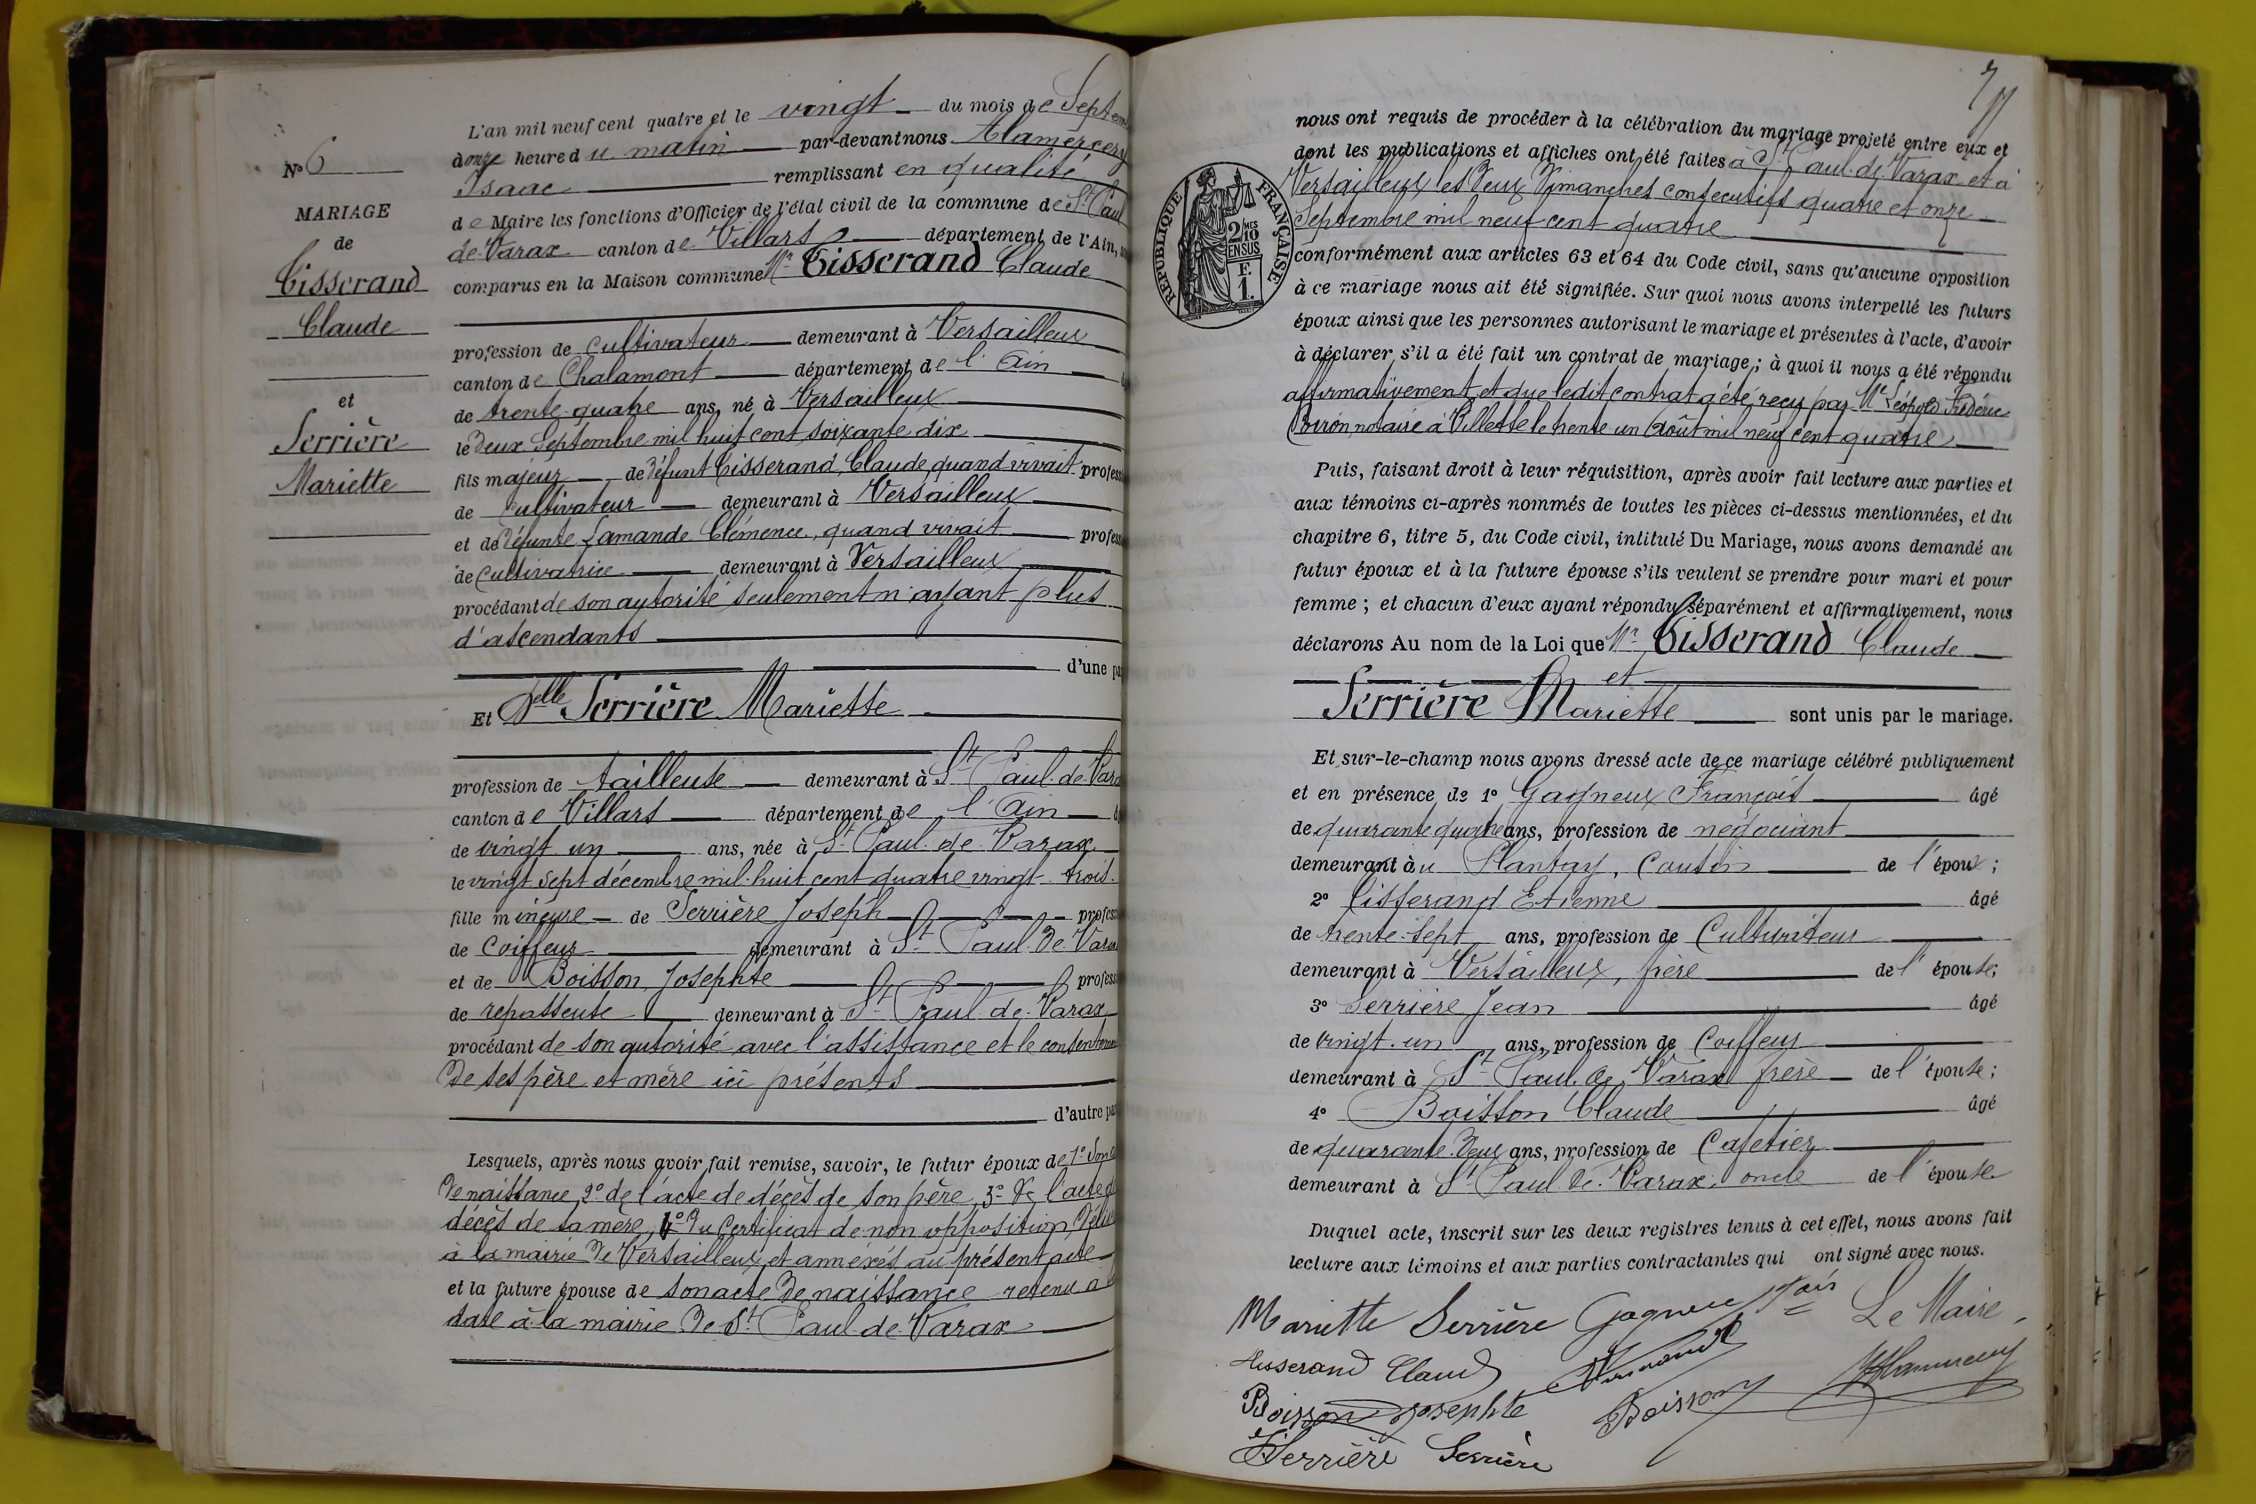 L'an mil neuf cent quatre et le vingt du mois de Septem
à onze heure du matin par-devant nous Alamercery
Isaac remplissant en qualité
de Maire les fonctions d'Officier de l'état civil de la commune de St Paul
de Varax canton de Villars département de l'Ain,
comparus en la Maison commune Mr Tisserand Claude
No 6
MARIAGE
de
Tisserand
Claude
et
Serrière
Mariette
profession de cultivateur demeurant à Versailleux
canton de Chalamont département de l'Ain
de trente quatre ans, né à Versailleux
le deux Septembre mil huit cent soixante dix
fils majeur de défunt Tisserand, Claude, quand vivait profess
de cultivateur demeurant à Versailleux
et de défunte Lamande Clémence, quand vivait profess
de cultivatrice demeurant à Versailleux
procédant de son autorité seulement n'ayant plus
d'ascendants
d'une pa
Et Delle Serrière Mariette
profession de tailleuse demeurant à St Paul de Vara
canton de Villars département de l'Ain
de vingt un ans, née à St Paul de Varax
le vingt sept décembre mil huit cent quatre vingt trois
fille mineure de Serrière Joseph profess
de coiffeur demeurant à St Paul de Vara
et de Boisson Josephte profess
de repasseuse demeurant à St Paul de Varax
procédant de son autorité avec l'assistance et le consenteme
de ses père et mère ici présents
d'autre pa
Lesquels, après nous avoir fait remise, savoir, le futur époux de 1° Son
de naissance, 2° de l'acte de décès de son père, 3° de l'acte d
décès de sa mère, 4° du certificat de non opposition, déli
à la mairie de Versailleux, et annexés au présent acte
et la future épouse de son acte de naissance retenu à
date à la mairie de St Paul de Varax
nous ont requis de procéder à la célébration du mariage projeté entre eux et
dont les publications et affiches ont été faites à St Paul de Varax et à
Versailleux les deux Dimanches consecutifs quatre et onze
Septembre mil neuf cent quatre
RÉPUBLIQUE FRANÇAISE
2 MES 10
EN SUS
F.
1.
conformément aux articles 63 et 64 du Code civil, sans qu'aucune opposition
à ce mariage nous ait été signifiée. Sur quoi nous avons interpellé les futurs
époux ainsi que les personnes autorisant le mariage et présentes à l'acte, d'avoir
à déclarer s'il a été fait un contrat de mariage; à quoi il nous a été répondu
affirmativement, et que ledit contrat a été reçu par Me Léopold Frédéric
Poiron, notaire à Villette le trente un Août mil neuf cent quatre
Puis, faisant droit à leur réquisition, après avoir fait lecture aux parties et
aux témoins ci-après nommés de toutes les pièces ci-dessus mentionnées, et du
chapitre 6, titre 5, du Code civil, intitulé Du Mariage, nous avons demandé au
futur époux et à la future épouse s'ils veulent se prendre pour mari et pour
femme; et chacun d'eux ayant répondu séparément et affirmativement, nous
déclarons Au nom de la Loi que Mr Tisserand Claude
et
Serrière Mariette sont unis par le mariage.
Et sur-le-champ nous avons dressé acte de ce mariage célébré publiquement
et en présence de 1° Gagneux François âgé
de quarante quatre ans, profession de négociant
demeurant au Plantay, cousin de l'époux;
2° Tisserand Etienne âgé
de trente-sept ans, profession de Cultivateur
demeurant à Versailleux, frère de l'épouse;
3° Serrière Jean âgé
de vingt-un ans, profession de Coiffeur
demeurant à St Paul de Varax frère de l'épouse;
4° Boisson Claude âgé
de quarante deux ans, profession de Cafetier
demeurant à St Paul de Varax, oncle de l'épouse
Duquel acte, inscrit sur les deux registres tenus à cet effet, nous avons fait
lecture aux témoins et aux parties contractantes qui ont signé avec nous.
Mariette Serrière Gagneux Fois Le Maire,
Tisserand Claude
Boisson Josephte Boisson
Serrière Serrière